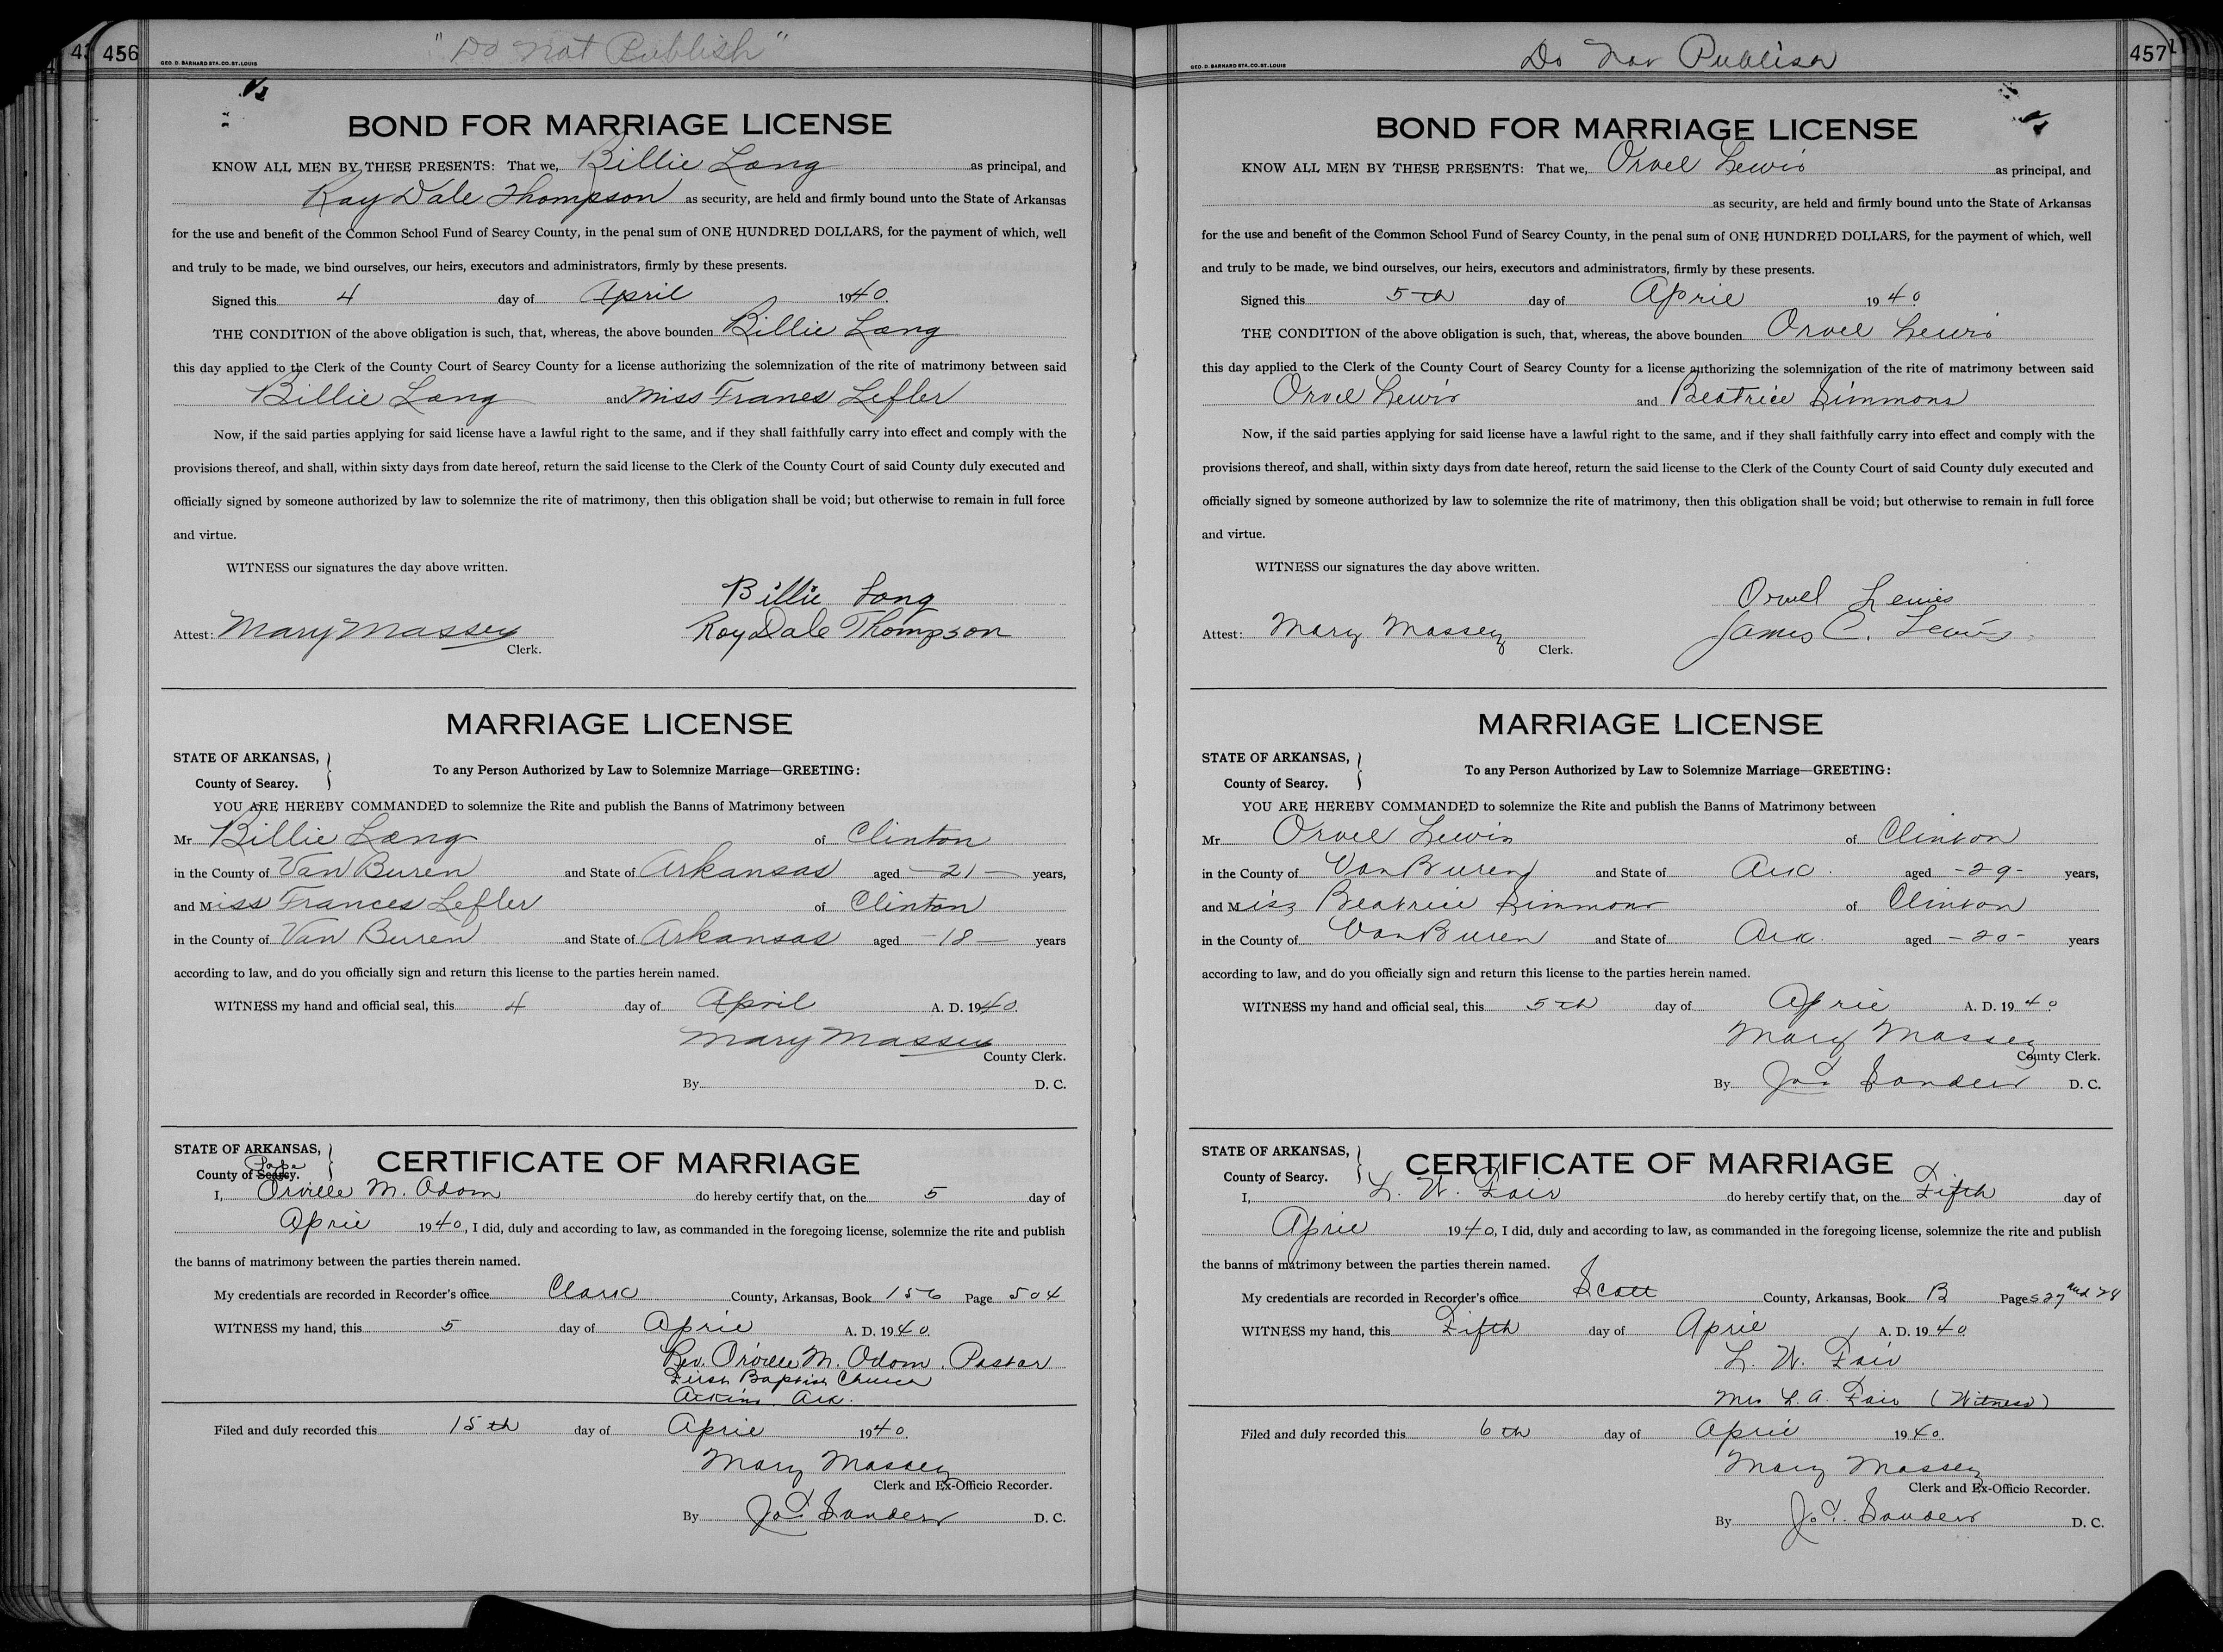 456
GEO. D. BARNARD STA. CO. ST. LOUIS
"Do Not Publish"
BOND FOR MARRIAGE LICENSE
KNOW ALL MEN BY THESE PRESENTS: That we, Billie Lang as principal, and
Ray Dale Thompson as security, are held and firmly bound unto the State of Arkansas
for the use and benefit of the Common School Fund of Searcy County, in the penal sum of ONE HUNDRED DOLLARS, for the payment of which, well
and truly to be made, we bind ourselves, our heirs, executors and administrators, firmly by these presents.
Signed this 4 day of April 1940.
THE CONDITION of the above obligation is such, that, whereas, the above bounden Billie Lang
this day applied to the Clerk of the County Court of Searcy County for a license authorizing the solemnization of the rite of matrimony between said
Billie Lang and Miss Franes Lefler
Now, if the said parties applying for said license have a lawful right to the same, and if they shall faithfully carry into effect and comply with the
provisions thereof, and shall, within sixty days from date hereof, return the said license to the Clerk of the County Court of said County duly executed and
officially signed by someone authorized by law to solemnize the rite of matrimony, then this obligation shall be void; but otherwise to remain in full force
and virtue.
WITNESS our signatures the day above written.
Billie Long
Attest: Mary Massey Roy Dale Thompson
Clerk.
MARRIAGE LICENSE
STATE OF ARKANSAS,
County of Searcy.
To any Person Authorized by Law to Solemnize Marriage—GREETING:
YOU ARE HEREBY COMMANDED to solemnize the Rite and publish the Banns of Matrimony between
Mr Billie Lang of Clinton
in the County of Van Buren and State of Arkansas aged —21— years,
and Miss Frances Lefler of Clinton
in the County of Van Buren and State of Arkansas aged —18— years
according to law, and do you officially sign and return this license to the parties herein named.
WITNESS my hand and official seal, this 4 day of April A. D. 1940.
Mary Massey
County Clerk.
By D. C.
STATE OF ARKANSAS,
CERTIFICATE OF MARRIAGE
Pope
County of Searcy.
I, Orville M. Odom do hereby certify that, on the 5 day of
April 1940, I did, duly and according to law, as commanded in the foregoing license, solemnize the rite and publish
the banns of matrimony between the parties therein named.
My credentials are recorded in Recorder's office Clark County, Arkansas, Book 156 Page 504
WITNESS my hand, this 5 day of April A. D. 1940.
Rev. Orville M. Odom, Pastor
First Baptist Church
Atkins Ark.
Filed and duly recorded this 15th day of April 1940.
Mary Massey
Clerk and Ex-Officio Recorder.
By Sanders D. C.
457
GEO. D. BARNARD STA. CO. ST. LOUIS
Do Not Publish
BOND FOR MARRIAGE LICENSE
KNOW ALL MEN BY THESE PRESENTS: That we, Orvel Lewis as principal, and
as security, are held and firmly bound unto the State of Arkansas
for the use and benefit of the Common School Fund of Searcy County, in the penal sum of ONE HUNDRED DOLLARS, for the payment of which, well
and truly to be made, we bind ourselves, our heirs, executors and administrators, firmly by these presents.
Signed this 5th day of April 1940
THE CONDITION of the above obligation is such, that, whereas, the above bounden Orvel Lewis
this day applied to the Clerk of the County Court of Searcy County for a license authorizing the solemnization of the rite of matrimony between said
Orvel Lewis and Beatrice Simmons
Now, if the said parties applying for said license have a lawful right to the same, and if they shall faithfully carry into effect and comply with the
provisions thereof, and shall, within sixty days from date hereof, return the said license to the Clerk of the County Court of said County duly executed and
officially signed by someone authorized by law to solemnize the rite of matrimony, then this obligation shall be void; but otherwise to remain in full force
and virtue.
WITNESS our signatures the day above written.
Orvel Lewis
Attest: Mary Massey James C. Lewis
Clerk.
MARRIAGE LICENSE
STATE OF ARKANSAS,
County of Searcy.
To any Person Authorized by Law to Solemnize Marriage—GREETING:
YOU ARE HEREBY COMMANDED to solemnize the Rite and publish the Banns of Matrimony between
Mr Orvel Lewis of Clinton
in the County of Van Buren and State of Ark. aged -29- years,
and Miss Beatrice Simmons of Clinton
in the County of Van Buren and State of Ark. aged -20- years
according to law, and do you officially sign and return this license to the parties herein named.
WITNESS my hand and official seal, this 5th day of April A. D. 1940
Mary Massey
County Clerk.
By Sanders D. C.
STATE OF ARKANSAS,
CERTIFICATE OF MARRIAGE
County of Searcy.
I, L. W. Fair do hereby certify that, on the Fifth day of
April 1940, I did, duly and according to law, as commanded in the foregoing license, solemnize the rite and publish
the banns of matrimony between the parties therein named.
My credentials are recorded in Recorder's office Scott County, Arkansas, Book B Page 527 and 28
WITNESS my hand, this Fifth day of April A. D. 1940
L. W. Fair
Mrs L. A. Fair (Witness)
Filed and duly recorded this 6th day of April 1940.
Mary Massey
Clerk and Ex-Officio Recorder.
By Sanders D. C.